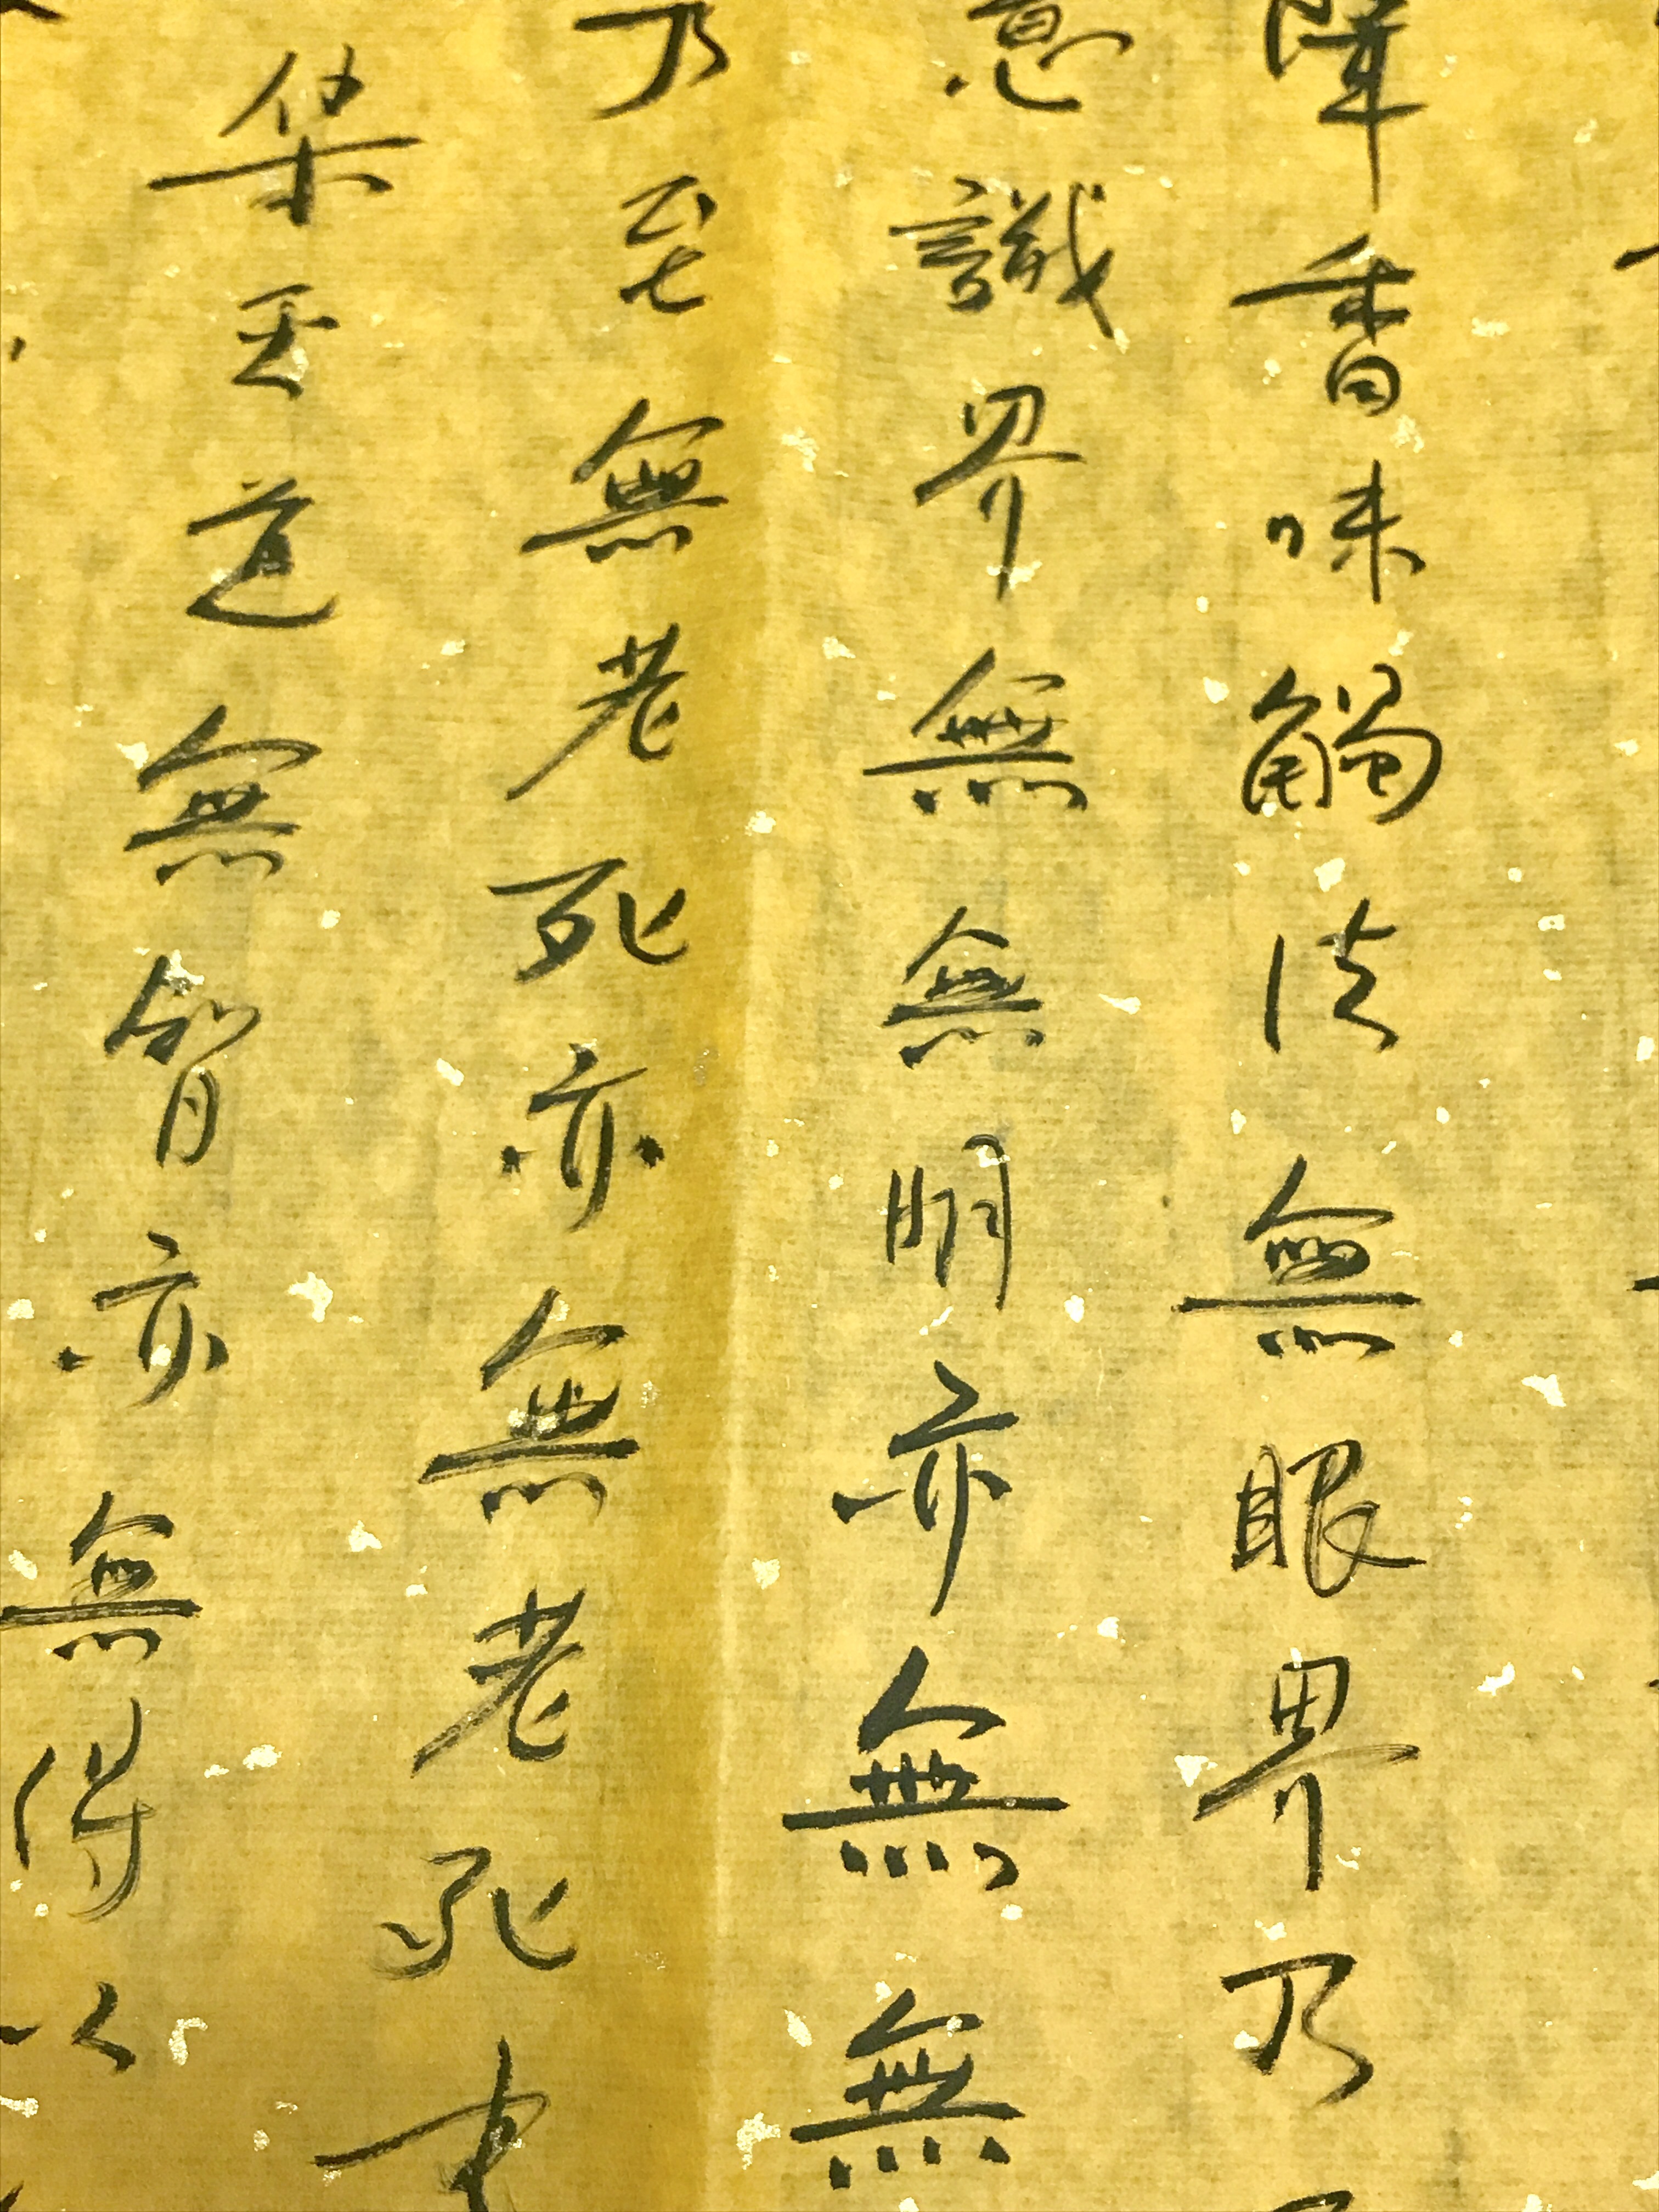 聲香味觸法無眼界乃
意識界無無明亦無無
乃至無老死亦無老死
集灭道無智亦無得以